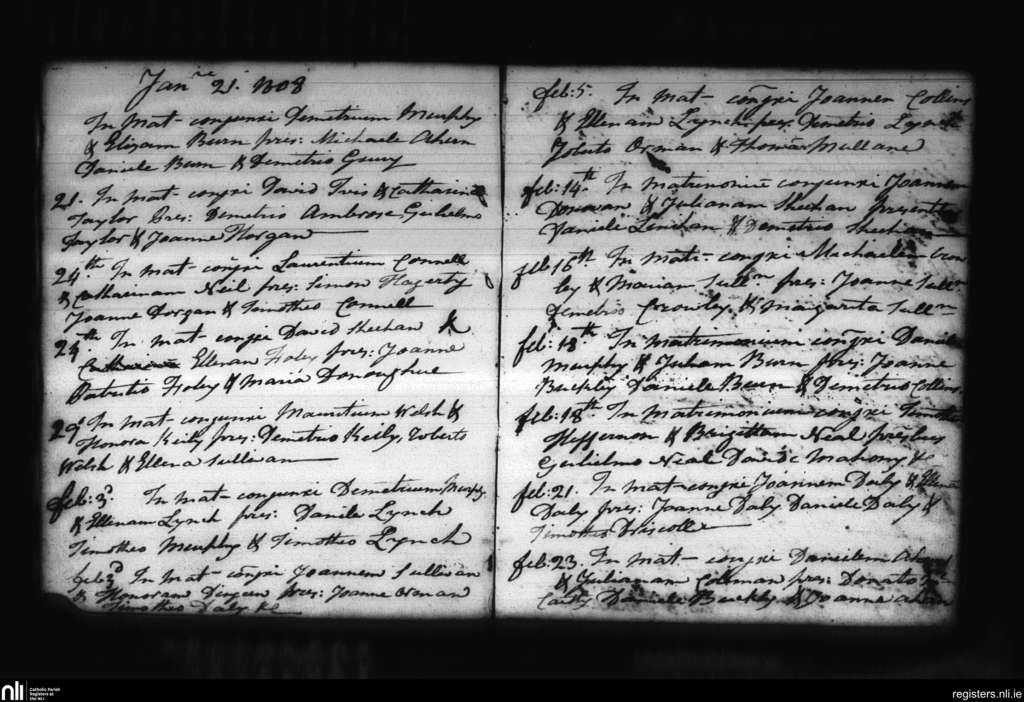 Janre 21. 1808
In Mat- conjunxi Demetrium Murphy
& Elizam Burn pres: Michaele Ahern
Daniele Burn & Demetrio
21. In mat- conjxi David & Catharine
Taylor Pres: Demetrio Ambrose Gulielmo
Taylor & Joanne Horgan
24th In mat- conjxi Laurentium Connell
& Catharinam Neil pres: Simon Hagerty
Joanne Horgan & Timotheo Connell
24th In mat- conjxi David Sheehan &
Ellenam Foley pres: Joanne
Patritio Foley & Maria Donoughue
29 In mat- conjunxi Mauritium Welsh &
Honora Keily pres: Demetrio Keily, Roberto
Welsh & Ellena Sullivan
feb: 3d. In mat- conjunxi Demetrium Murphy
& Ellenam Lynch pres: Daniele Lynch
Timotheo Murphy & Timotheo Lynch
feb 3d In mat- conjxi Joannem Sullivan
& Honoram pres: Joanne
Timotheo Daly &c
feb: 5. In mat- conjxi Joannem Collins
& Ellenam Lynch pres: Demetrio Lynch
& Thomas Mullane
feb: 14th. In matrimonium conjunxi Joannem
Donovan & Julianam Sheehan presentibus
Daniele & Demetrio Sheehan
feb 16th In mat- conjxi Michaelem Crow
ley & Mariam Sulln pres: Joanne Sulln
Demetrio Crowley & Margarita Sulln
feb: 18th. In matrimonium conjxi Daniele
Murphy & Juliam Burn pres: Joanne
Buckley Daniele Burn & Demetrio Collins
feb: 18th In Matrimonium conjxi Timotheo
Heffernon & Brigettam Neal presbus
Gulielmo Neal David Mahony &c
feb: 21. In mat- conjxi Joannem Daly & Ellena
Daly pres: Joanne Daly Daniele Daly &
Timotheo Driscoll
feb: 23. In mat- conjxi Danielem
& Julianam Coleman pres: Donato Mc
Carthy Daniele Buckley & Joanne
nli
Catholic Parish
Registers at
the NLI
registers.nli.ie